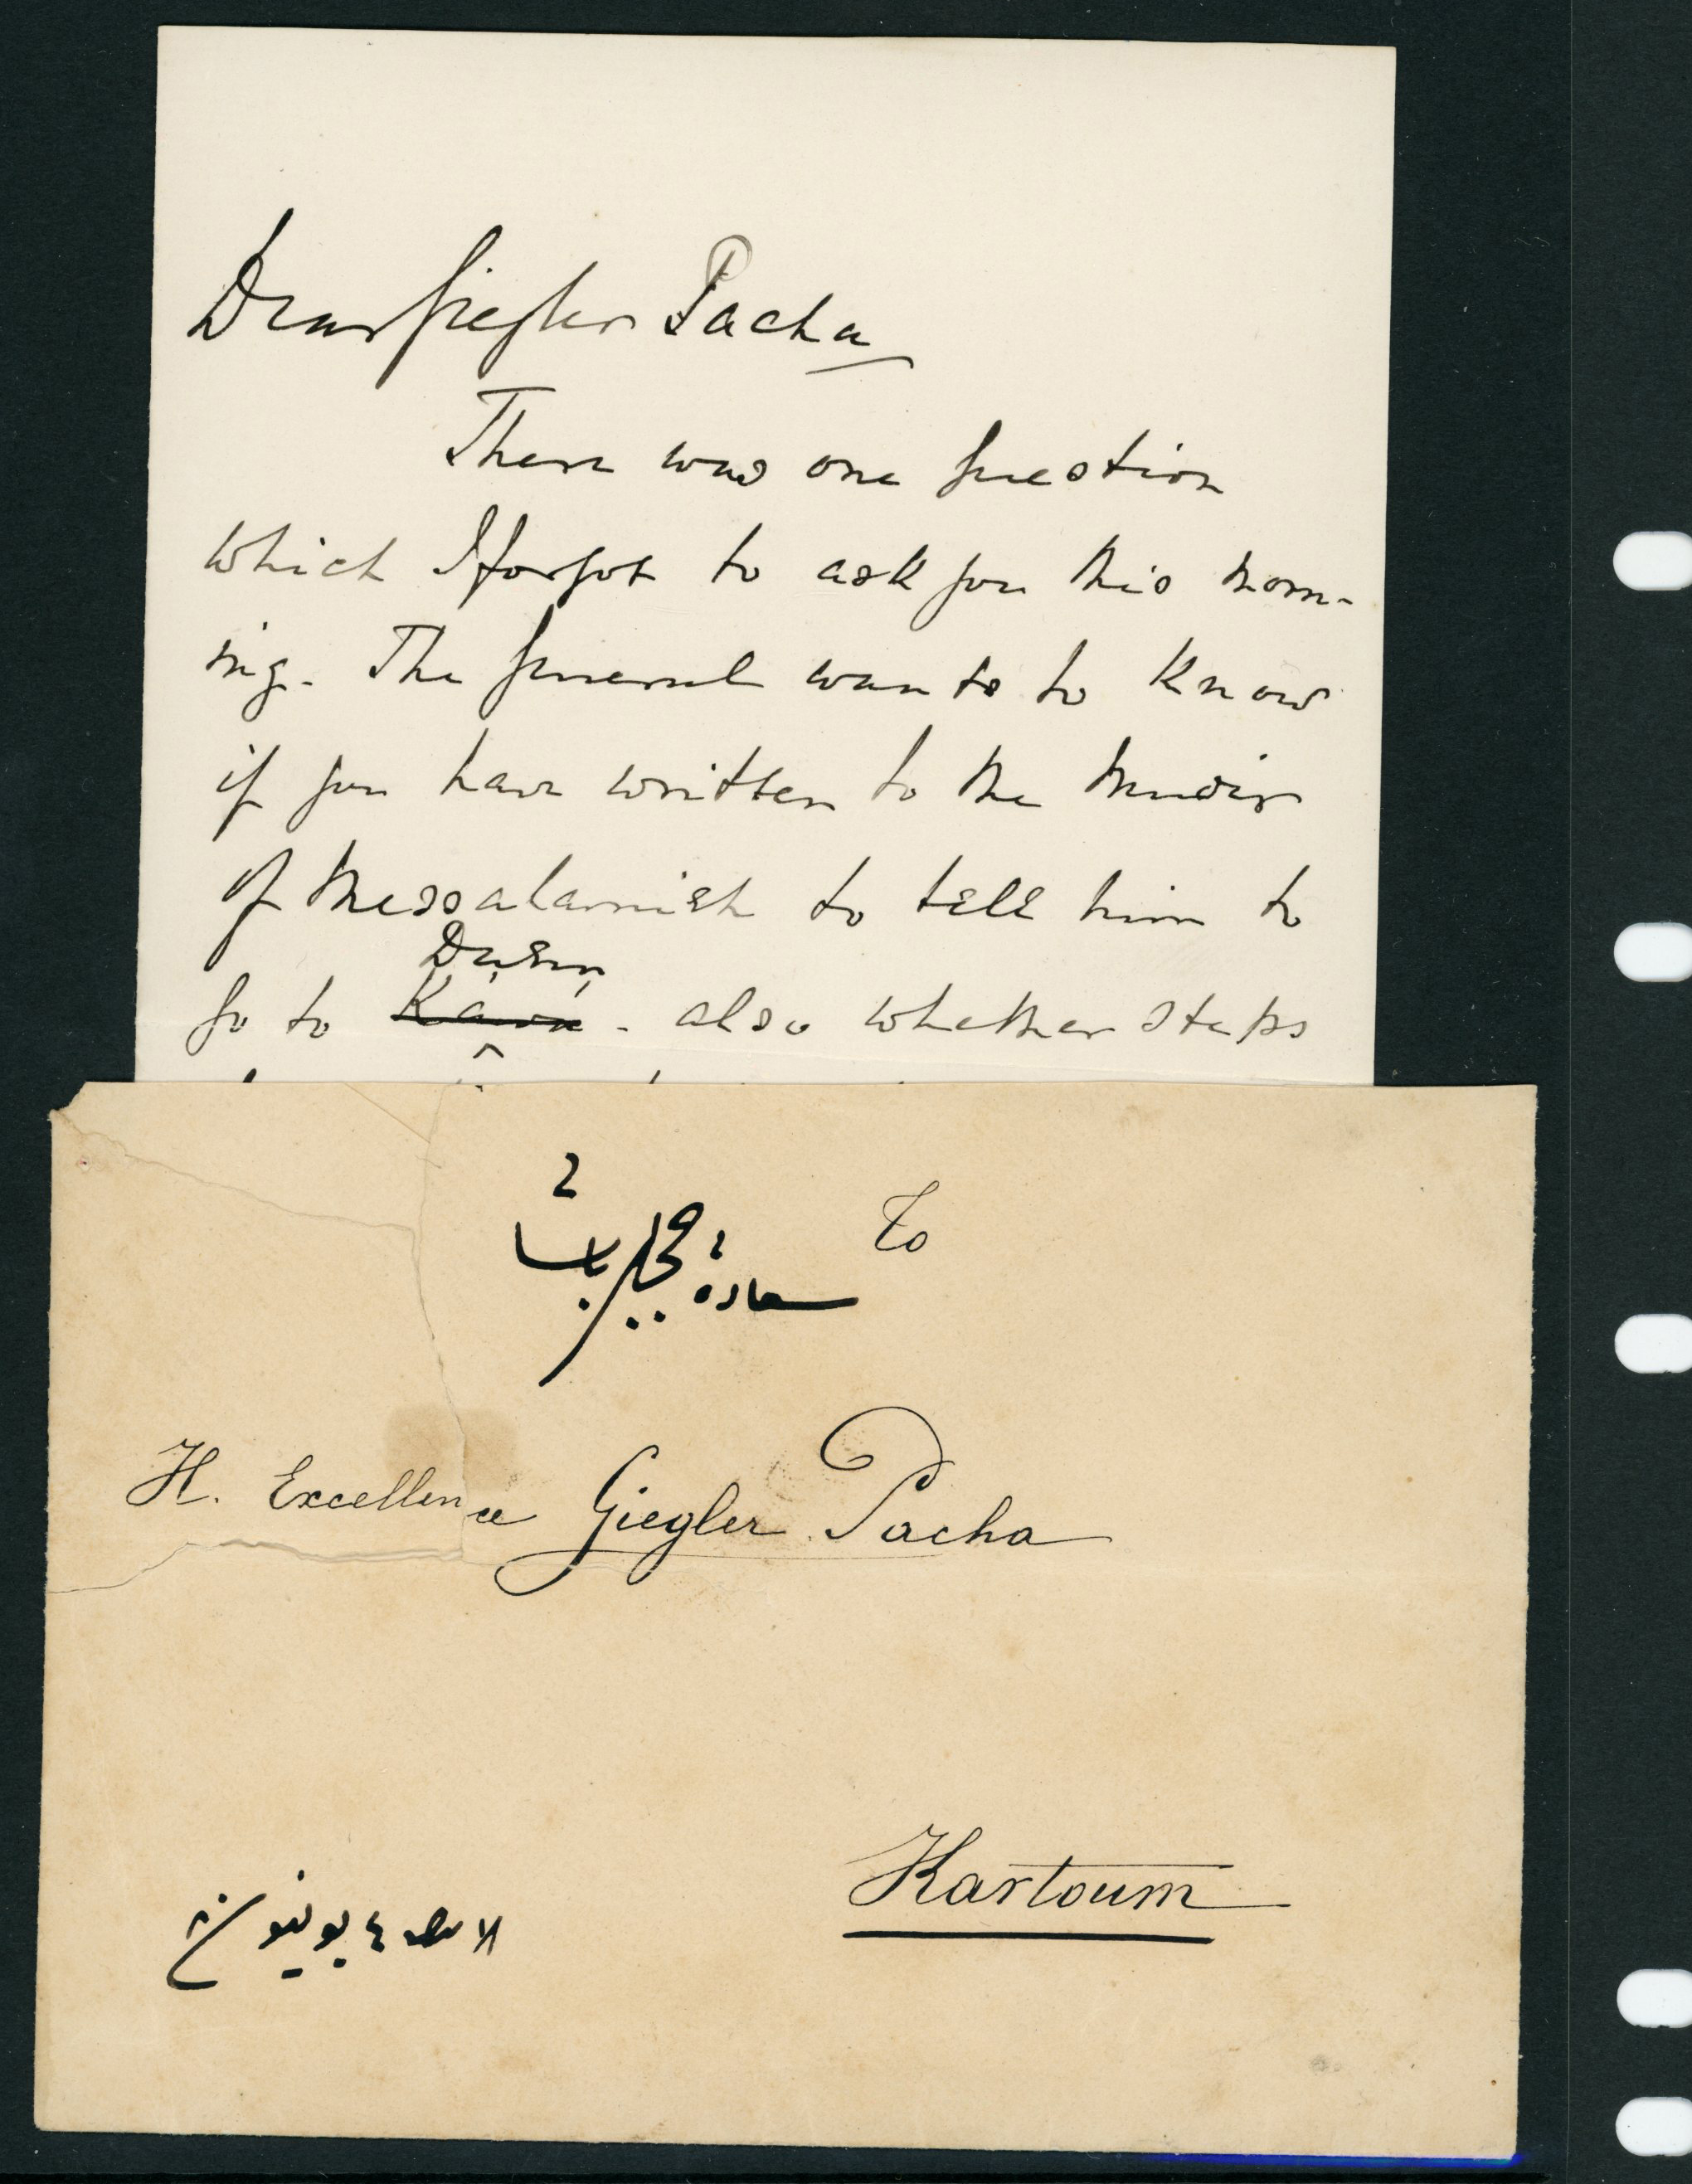 Dear Giegler Pacha
There was one question
which I forgot to ask you this morn-
ing. The General wants to know
if you have written to the Mudir
of Messalamieh to tell him to
Duem
go to Kawa - also whether steps
To
سعادة جيكلر باشا
H. Excellence Giegler Pacha
Kartoum
٤ يونيو